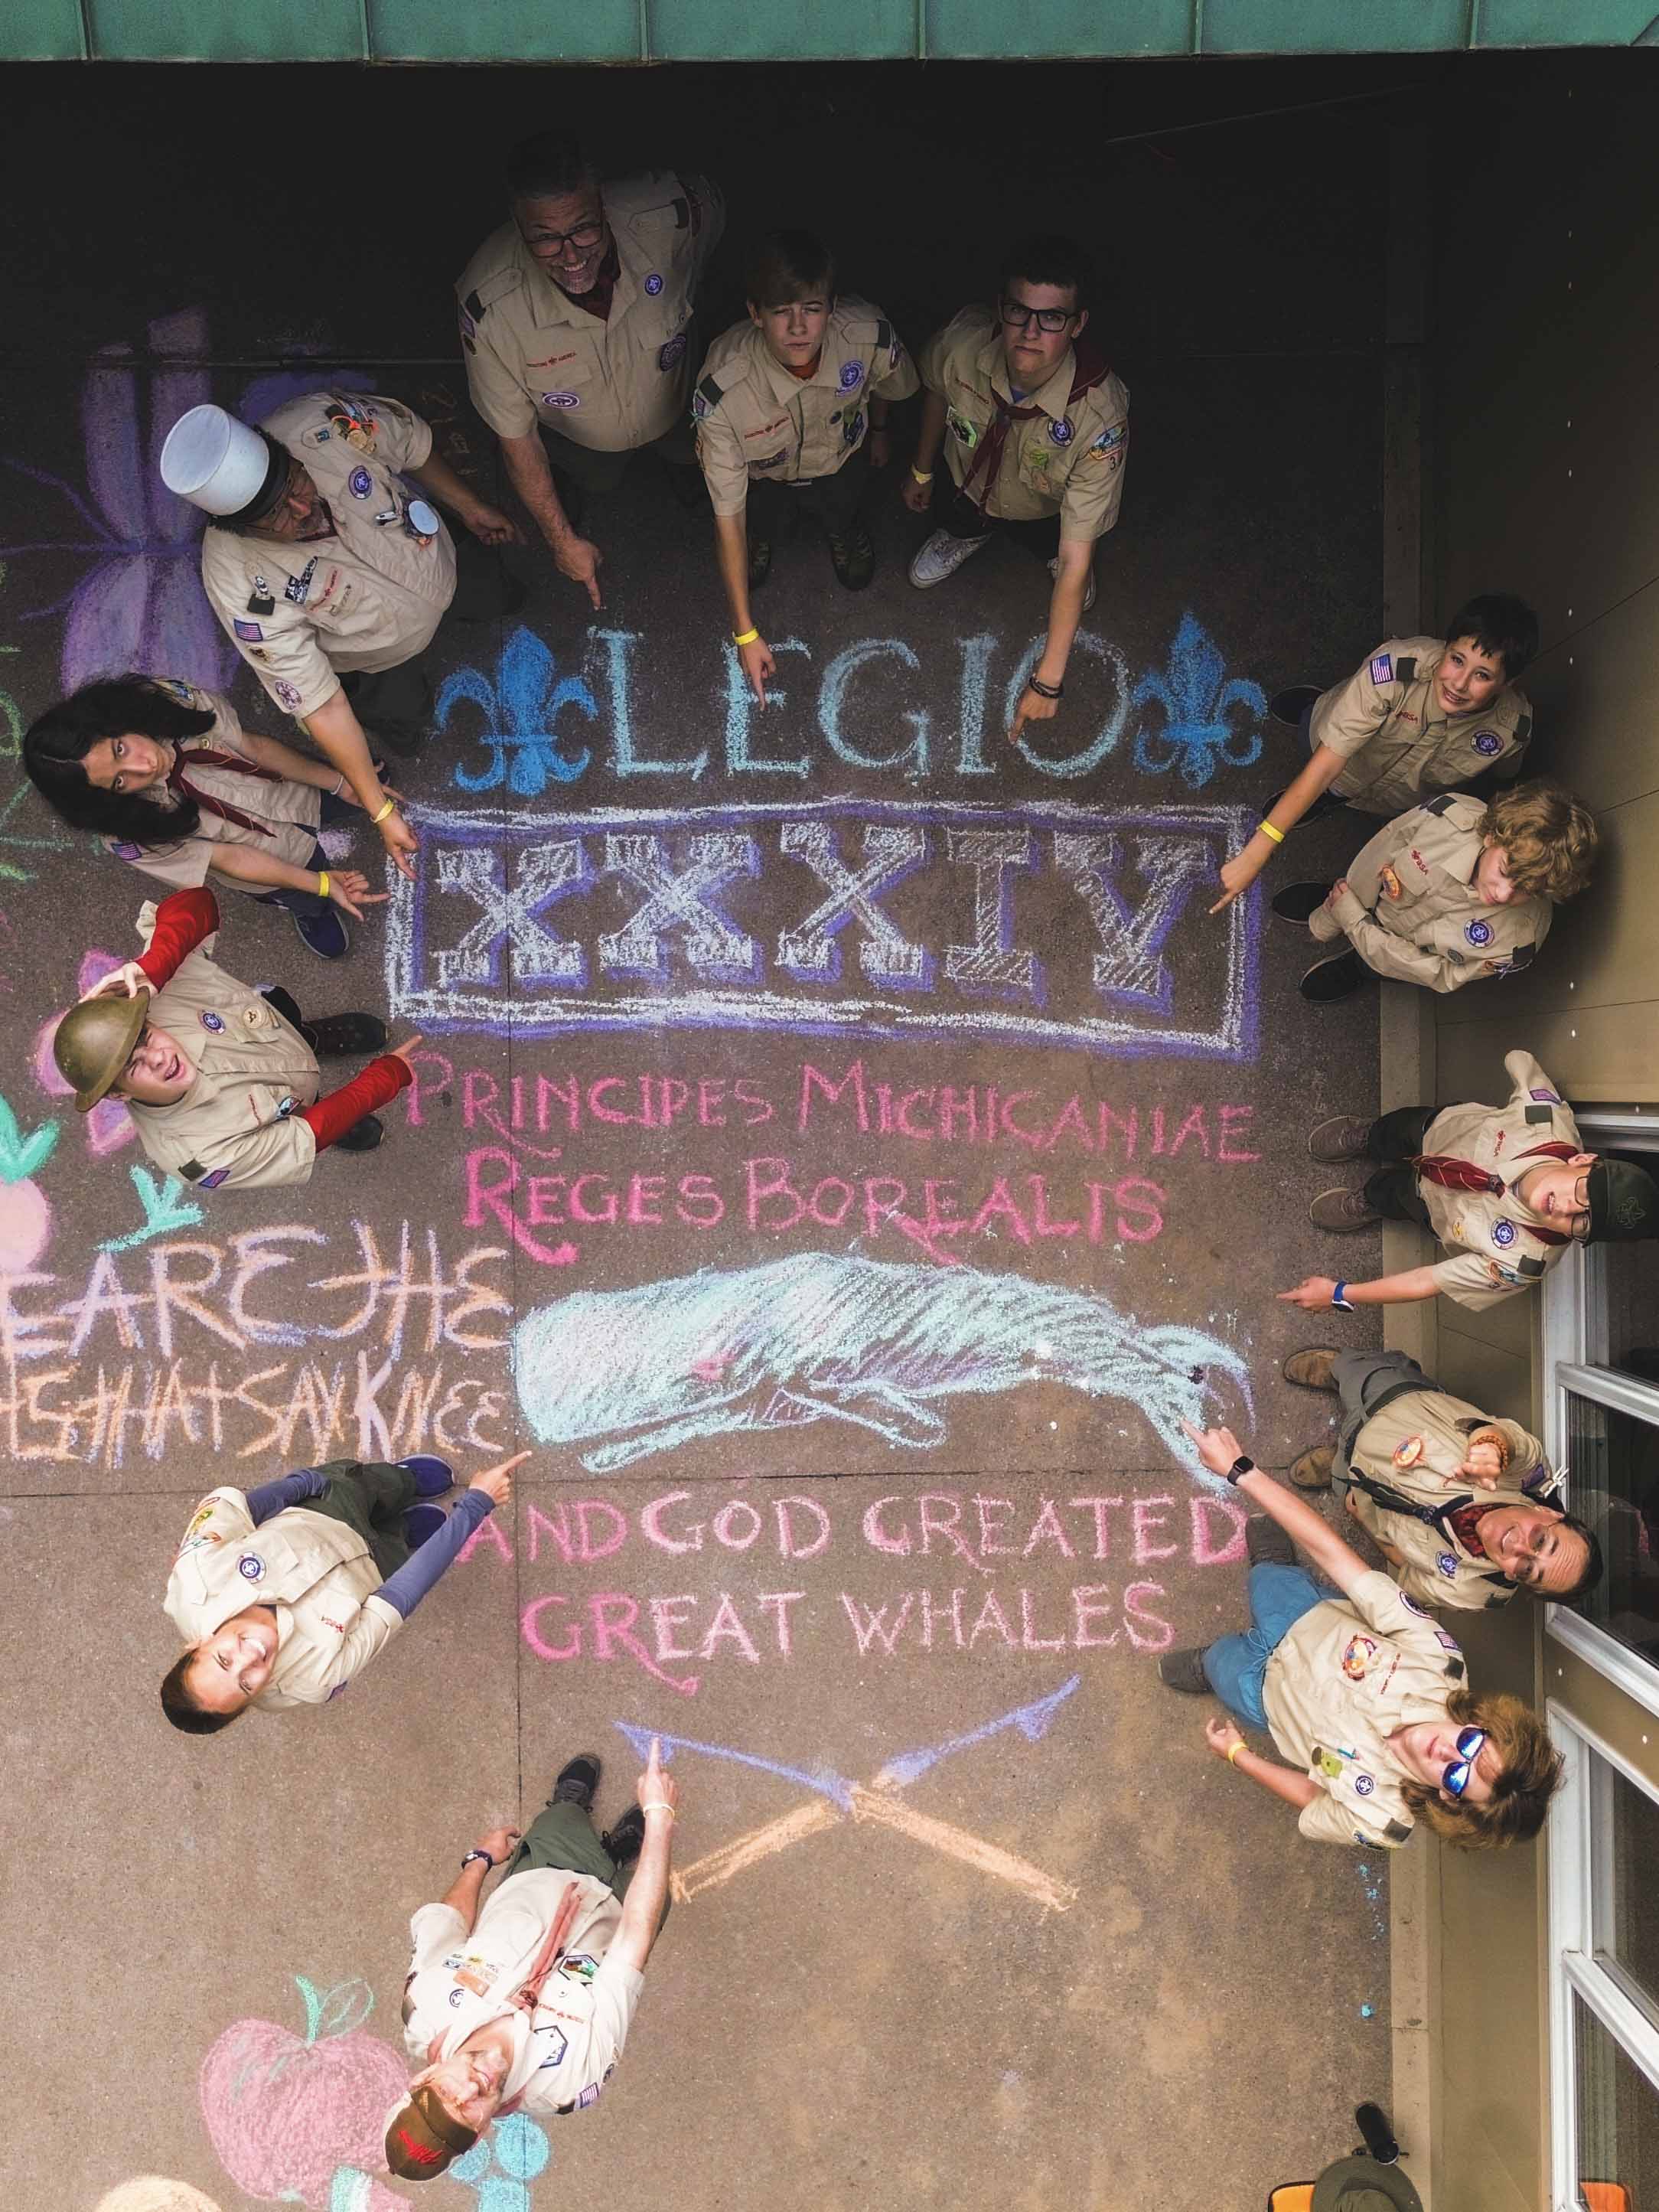 LEGIO
XXXIV
PRINCIPES MICHICANIAE
REGES BOREALIS
ARE THE
THAT SAY KNEE
AND GOD CREATED
GREAT WHALES